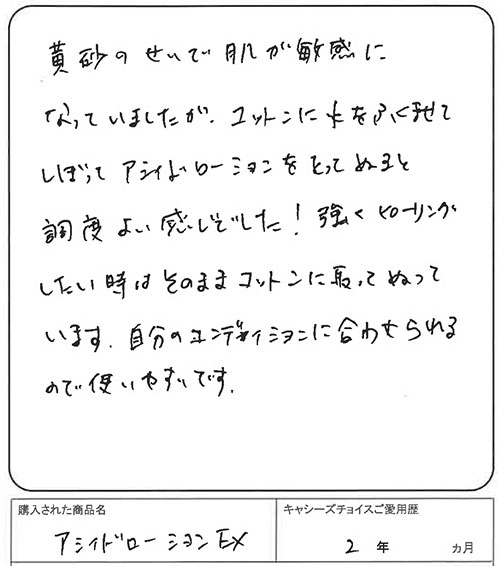 黄砂のせいで肌が敏感に
なっていましたが、コットンに水をふくませて
しぼって アシィドローションをとってぬると
調度よい感じでした！強くピーリング
したい時はそのままコットンに取ってぬって
います。自分のコンディションに合わせられる
ので使いやすいです。
購入された商品名
キャシーズチョイスご愛用歴
アシィドローションEX
2 年 カ月